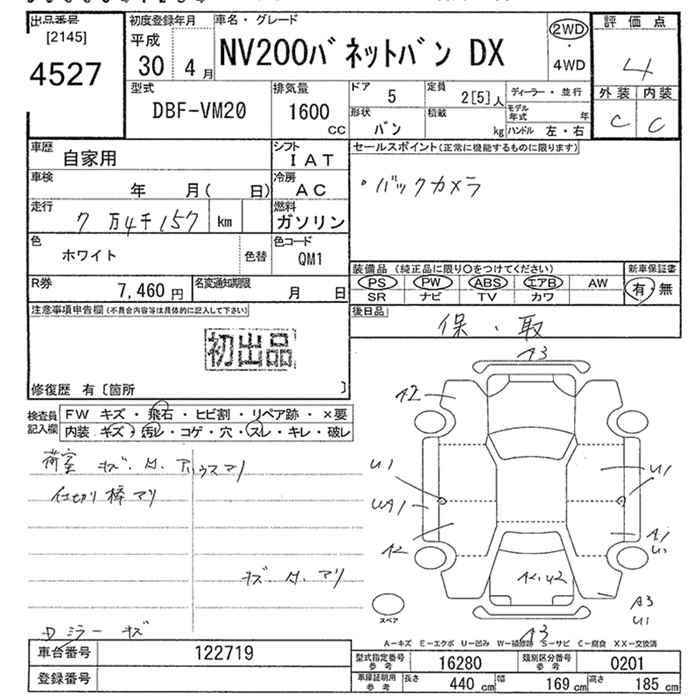 出品番号
[2145]
4527
初度登録年月
平成
30 4 月
車名・グレード
NV200バネットバン DX
2WD
・
4WD
評価点
4
外装 内装
C C
型式
DBF-VM20
排気量
1600
cc
ドア 5
定員 2[5]人
ディーラー・並行
形状 バン
積載 kg
モデル年式 年
ハンドル 左・右
車歴 自家用
シフト IAT
セールスポイント(正常に機能するものに限ります)
・バックカメラ
車検 年 月( 日)
冷房 AC
走行 7万4千157 km
燃料 ガソリン
色 ホワイト
色替
色コード QM1
装備品(純正品に限り○をつけてください)
PS PW ABS エアB AW
SR ナビ TV カワ
新車保証書
有・無
R券 7,460円
名変通知期限 月 日
後日品
保・取
注意事項申告欄(不具合内容等は具体的に記入して下さい)
初出品
修復歴 有〔箇所 〕
検査員
記入欄
FW キズ・飛石・ヒビ割・リペア跡・×要
内装 キズ・汚レ・コゲ・穴・スレ・キレ・破レ
荷室 キズ・
仕切り棒アリ
Dミラー キズ
A3
A2
U1
U1
UA1
A2
A1
U1
A2・U2
A3
U1
スペア
A3
A−キズ E−エクボ U−凹み W−補修跡 S−サビ C−腐食 XX−交換済
車台番号 122719
登録番号
型式指定番号
参考
16280
類別区分番号
参考
0201
車庫証明用
参考
長さ 440 cm 幅 169 cm 高さ 185 cm